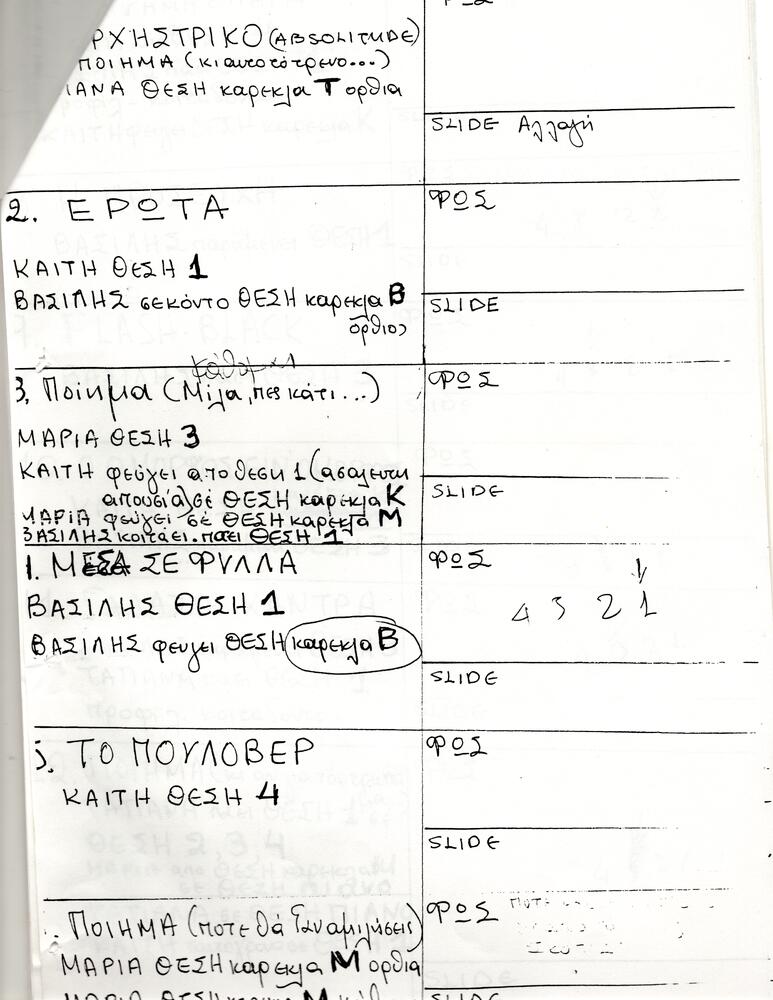 ΦΩΣ
ΡΧΗΣΤΡΙΚΟ (ABSOLITUDE)
ΠΟΙΗΜΑ (κι αυτο το τρενο...)
ΙΑΝΑ ΘΕΣΗ καρεκλα Τ ορθια
SLIDE Αλλαγή
2. ΕΡΩΤΑ
ΦΩΣ
ΚΑΙΤΗ ΘΕΣΗ 1
ΒΑΣΙΛΗΣ σεκόντο ΘΕΣΗ καρεκλα Β
ορθιος
SLIDE
3. Ποίημα (Μίλα, πες κάτι...)
ΦΩΣ
ΜΑΡΙΑ ΘΕΣΗ 3
ΚΑΙΤΗ φεύγει απο θεση 1 (ασαλευτη
απουσία) σέ ΘΕΣΗ καρεκλα Κ
ΜΑΡΙΑ φευγει σέ ΘΕΣΗ καρεκλα Μ
ΒΑΣΙΛΗΣ κοιτάει. παει ΘΕΣΗ 1
SLIDE
1. ΜΕΣΑ ΣΕ ΦΥΛΛΑ
ΦΩΣ
ΒΑΣΙΛΗΣ ΘΕΣΗ 1
4 3 2 1
ΒΑΣΙΛΗΣ φευγει ΘΕΣΗ καρεκλα Β
SLIDE
5. ΤΟ ΠΟΥΛΟΒΕΡ
ΦΩΣ
ΚΑΙΤΗ ΘΕΣΗ 4
SLIDE
ΠΟΙΗΜΑ (ποτε θα ξαναμιλησεις)
ΦΩΣ
ΜΑΡΙΑ ΘΕΣΗ καρεκλα Μ ορθια
SLIDE